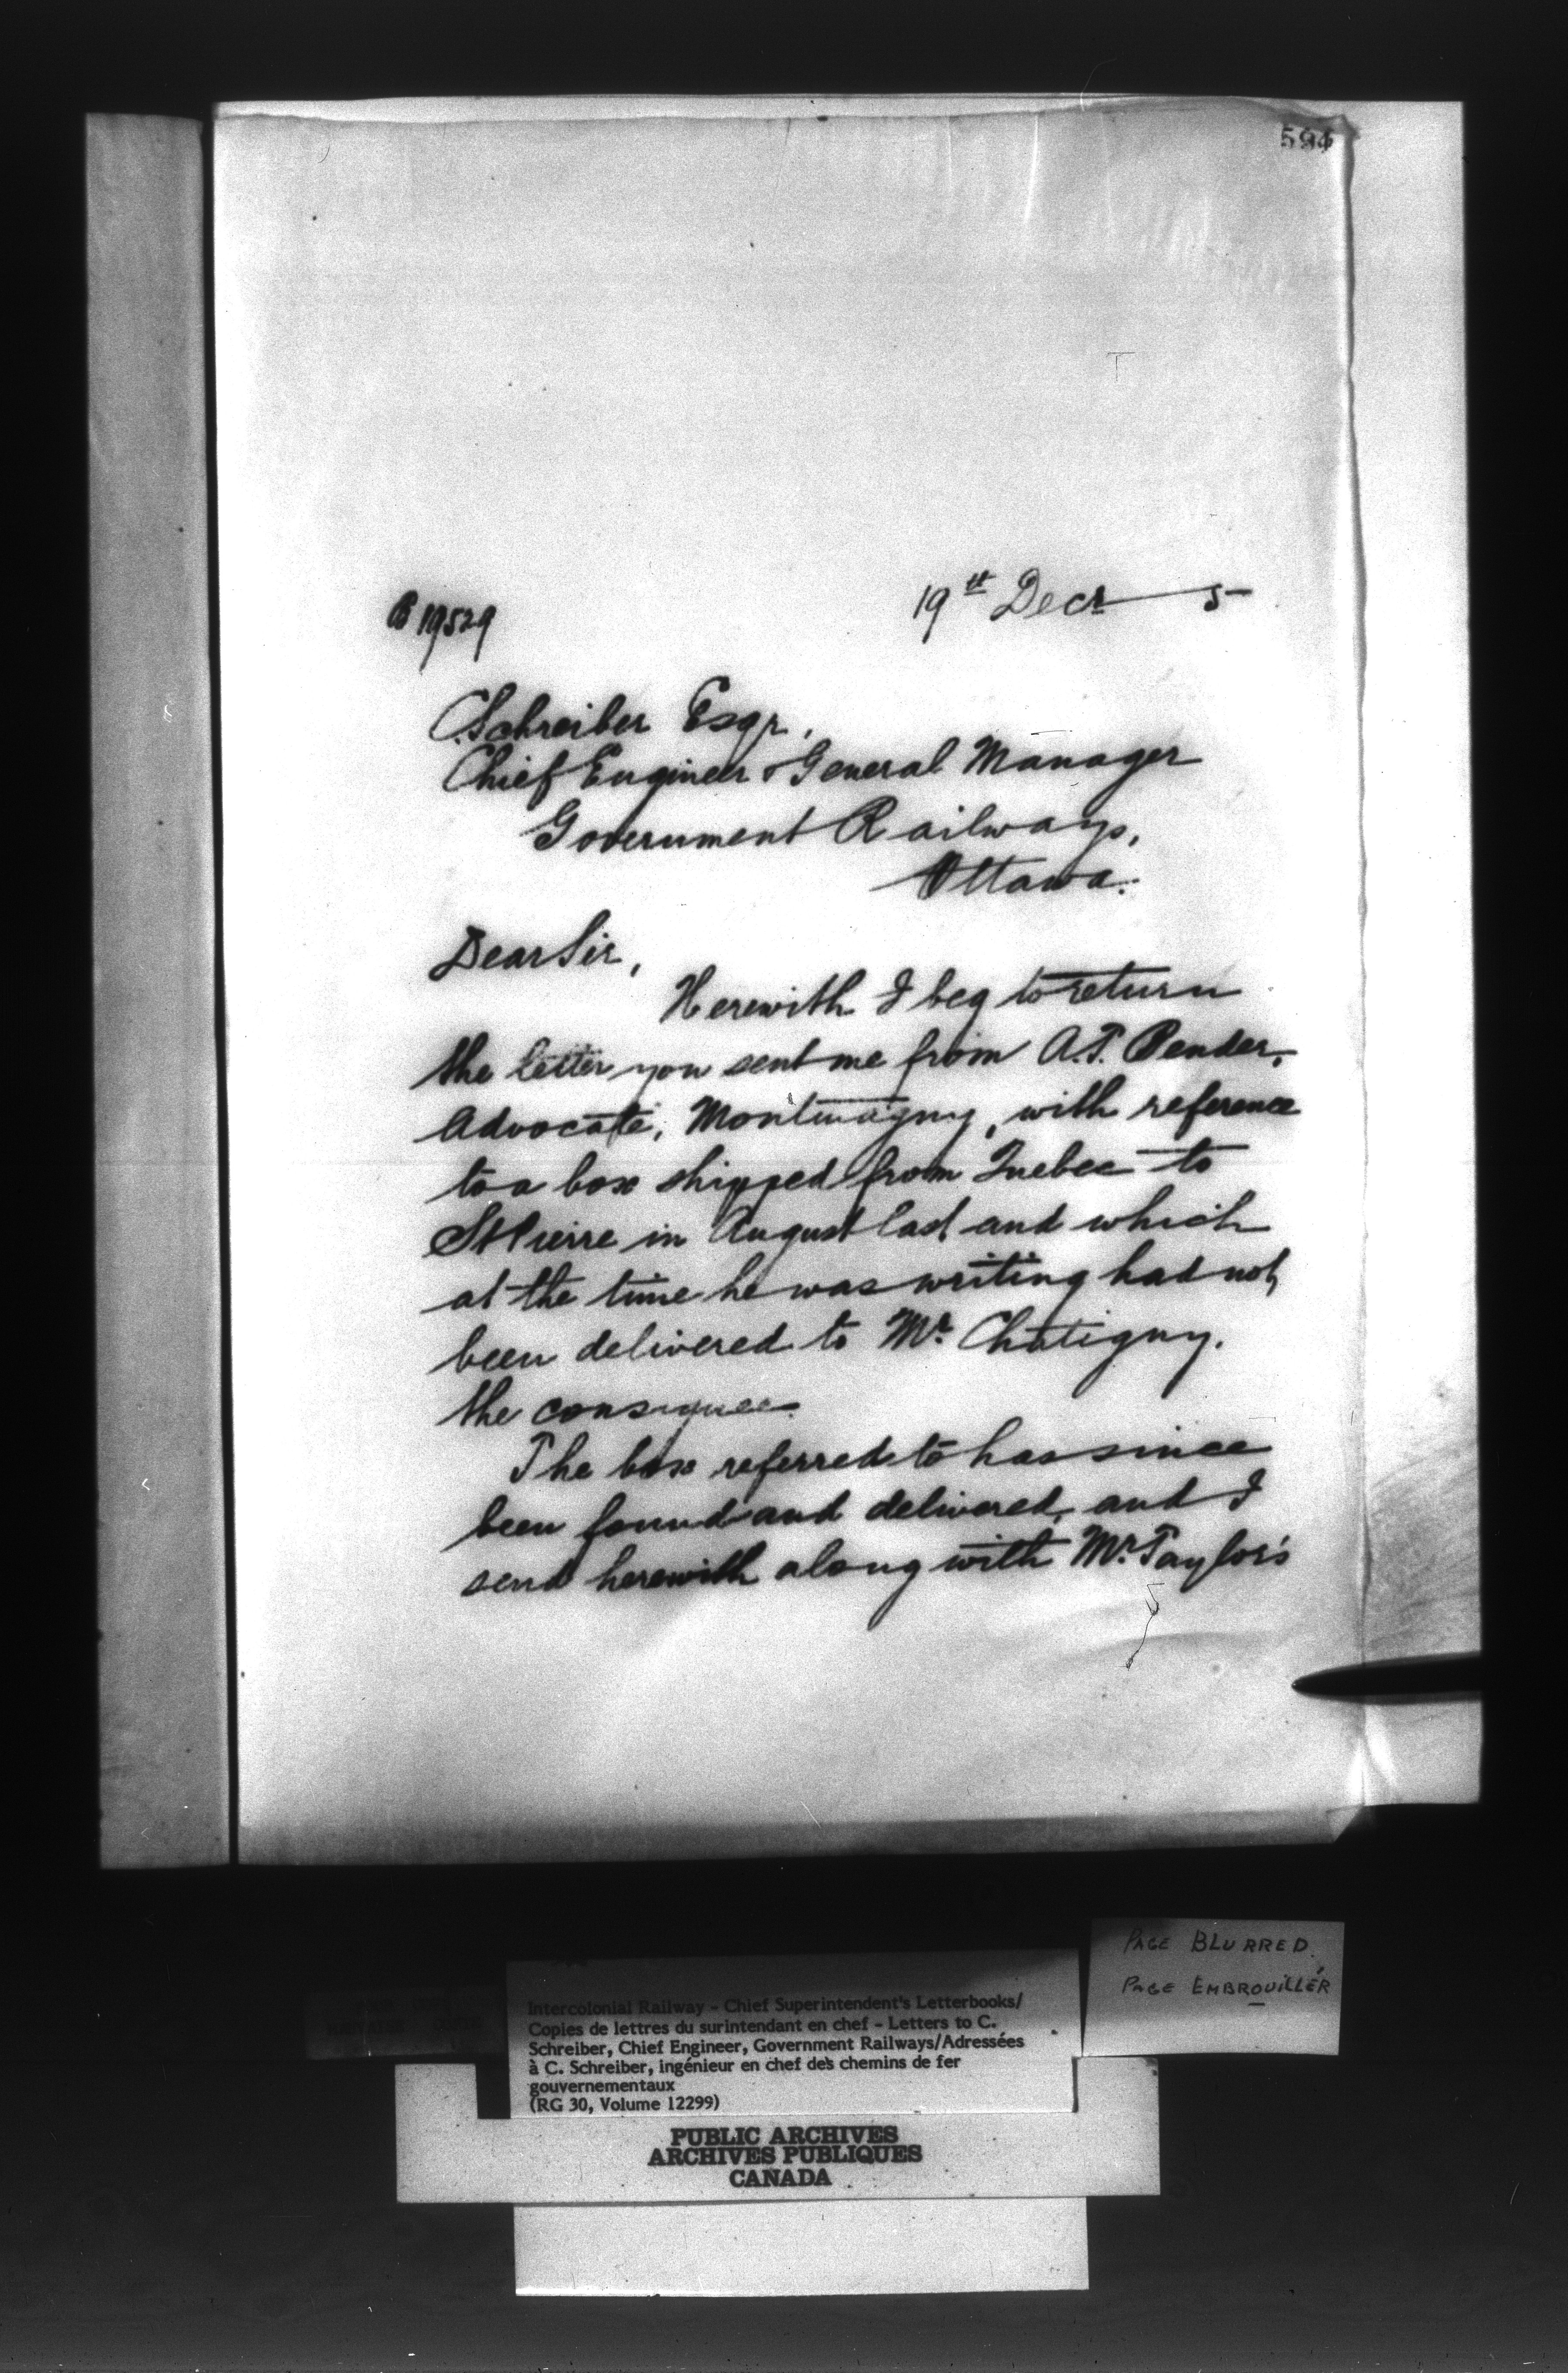 594
B 19529
19th Decr 5
C. Schreiber Esqr.,
Chief Engineer & General Manager
Government Railways,
Ottawa.
Dear Sir,
Herewith I beg to return
the letter you sent me from A.P. Bender,
Advocate, Montmagny, with reference
to a box shipped from Quebec to
St Pierre in August last and which
at the time he was writing had not
been delivered to Mr. Chatigny.
the consignee.
The box referred to has since
been found and delivered, and I
send herewith along with Mr. Taylor's
PAGE BLURRED.
PAGE EMBROUILLÉR
Intercolonial Railway - Chief Superintendent's Letterbooks/
Copies de lettres du surintendant en chef - Letters to C.
Schreiber, Chief Engineer, Government Railways/Adressées
à C. Schreiber, ingénieur en chef des chemins de fer
gouvernementaux
(RG 30, Volume 12299)
PUBLIC ARCHIVES
ARCHIVES PUBLIQUES
CANADA